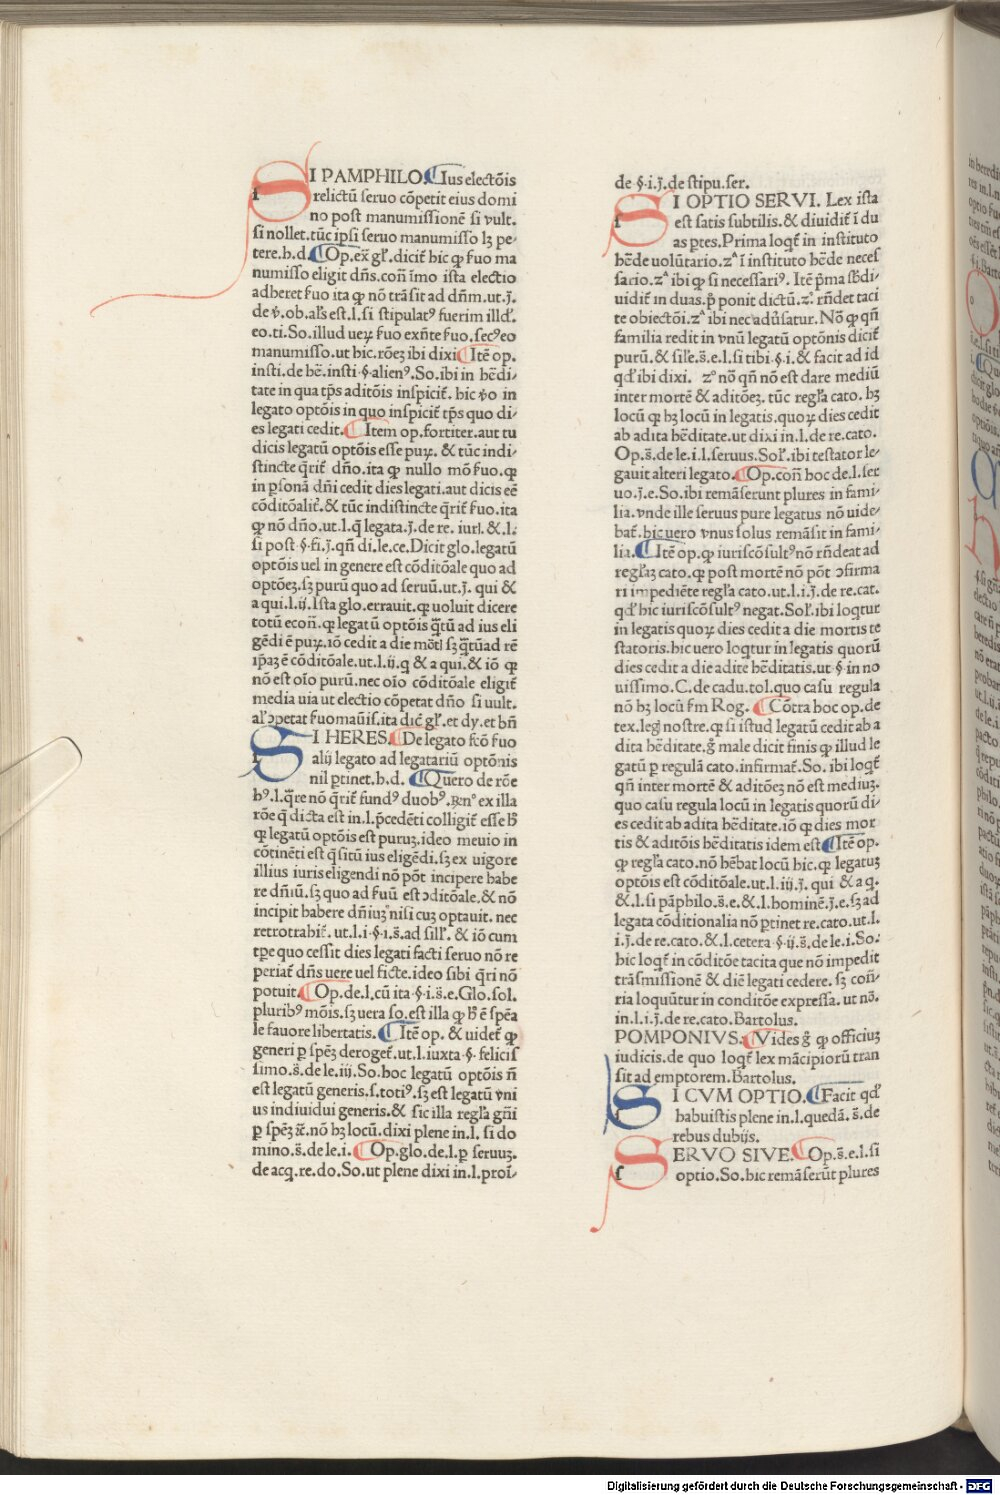 SI PAMPHILO. Ius electōis
relictū seruo cōpetit eius domi
no post manumissionē si vult.
si nollet. tūc ipsi seruo manumisso lȝ pe-
tere. h. d. Op. ex gl'. dicit̄ hic ꝙ suo ma
numissio eligit dn̄s. con̄ īmo ista electio
adheret suo ita ꝙ nō trāsit ad dn̄m. ut. j̄.
eo. ti. So. illud ueꝝ suo exn̄te suo. secꝰ eo
manumisso. ut hic. rōeȝ ibi dixi Itē op.
insti. de hē. insti § alienꝰ. So. ibi in hēdi-
tate in qua tp̄s aditōis inspicit̄. hic vo in
legato optōis in quo inspicit̄ tp̄s quo di-
es legati cedit. Item op. fortiter. aut tu
dicis legatū optōis esse puꝝ. & tūc indi-
stincte q̄rit̄ dn̄o. ita ꝙ nullo mō suo. ꝙ
in ꝑsonā dn̄i cedit dies legati. aut dicis eē
cōditōalit̄. & tūc indistincte q̄rit̄ suo. ita
ꝙ nō dn̄o. ut. l. q̄ legata. j̄. de re. iurl. & l.
si post § fi. j̄. qn̄ di. le. ce. Dicit glo. legatū
optōis uel in genere est cōditōale quo ad
optōeȝ. sȝ purū quo ad seruū. ut. j̄. qui &
a qui. l. ij. Ista glo. errauit. ꝙ uoluit dicere
totū econ̄. ꝙ legatū optōis q̄tū ad ius eli
gēdi ē puꝝ. iō cedit a die mōtl sȝ q̄tūad rē
ip̄aȝ ē cōditōale. ut. l. ij. q & a qui. & iō ꝙ
nō est oīo purū. nec oīo cōditōale eligit̄
media uia ut electio cōpetat dn̄o si uult.
al' ɔpetat suomaūis. ita dic̄ gl'. et dy. et bn̄
SI HERES. De legato fcō suo
alij legato ad legatariū optōnis
nil ꝑtinet. h. d. Quero de rōe
hꝰ. l. q̄re nō q̄rit̄ fundꝰ duobꝰ. ex illa
rōe q̄ dicta est in. l. p̄cedēti colligit̄ esse h̄
ꝙ legatū optōis est puruȝ. ideo meuio in
cōtinēti est q̄sitū ius eligēdi. sȝ ex uigore
illius iuris eligendi nō pōt incipere habe
re dn̄iū. sȝ quo ad suū est ɔditōale. & nō
incipit habere dn̄iuȝ nisi cuȝ optauit. nec
retrotrahit̄. ut. l. i § i. s̄. ad sill'. & iō cum
tꝑe quo cessit dies legati facti seruo nō re
periat̄ dn̄s uere uel ficte. ideo sibi q̄ri nō
potuit. Op. de. l. cū ita § i. s̄. e. Glo. sol.
pluribꝰ mōis. sȝ uera so. est illa ꝙ h̄ ē sp̄ea
le fauore libertatis. Itē op. & uidet̄ ꝙ
generi ꝑ spēȝ deroget̄. ut. l. iuxta § felicis
simo. s̄. de le. iij. So. hoc legatū optōis n̄
est legatū generis. s. totiꝰ. sȝ est legatū vni
us indiuidui generis. & sic illa regl'a gn̄i
ꝑ spēȝ ꝛc̄. nō hȝ locū. dixi plene in. l. si do
mino. s̄. de le. i. Op. glo. de. l. ꝑ seruuȝ.
de acq. re. do. So. ut plene dixi in. l. proī-
de § i. j̄. de stipu. ser.
SI OPTIO SERVI. Lex ista
est satis subtilis. & diuidit̄ ī du
as ꝑtes. Prima loqt̄ in instituto
hēde uolūtario. zᵃ ī instituto hēde neces
sario. zᵃ ibi ꝙ si necessariꝰ. Itē pͥma sb̄di-
uidit̄ in duas. p̄ ponit dictū. zᵒ rn̄det taci
te obiectōi. zᵃ ibi nec adūsatur. Nō ꝙ qn̄
familia redit in vnū legatū optōnis dicit̄
purū. & sil'e. s̄. e. l. si tibi § i. & facit ad id
qd' ibi dixi. zᵒ nō qn̄ nō est dare mediū
inter mortē & aditōeȝ. tūc regl'a cato. hȝ
locū ꝙ hȝ locū in legatis. quoꝝ dies cedit
ab adita hēditate. ut dixi in. l. de re. cato.
Op. s̄. de le. i. l. seruus. Sol'. ibi testator le-
gauit alteri legato. Op. con̄ hoc de. l. ser
uo. j̄. e. So. ibi remāserunt plures in fami-
lia. vnde ille seruus pure legatus nō uide-
bat̄. hic uero vnus solus remāsit in fami-
lia. Itē op. ꝙ iuriscōsultꝰ nō rn̄deat ad
regl'aȝ cato. ꝙ post mortē nō pōt ɔfirma
ri impediēte regl'a cato. ut. l. i. j̄. de re. cat.
qd' hic iuriscōsultꝰ negat. Sol'. ibi loqtur
in legatis quoꝝ dies cedit a die mortis te
statoris. hic uero loqtur in legatis quorū
dies cedit a die adite hēditatis. ut § in no
uissimo. C. de cadu. tol. quo casu regula
nō hȝ locū sm Rog. Cōtra hoc op. de
tex. leg nostre. ꝙ si istud legatū cedit ab a
dita hēditate. g̊ male dicit finis ꝙ illud le
gatū ꝑ regulā cato. infirmat̄. So. ibi loqt̄
qn̄ inter mortē & aditōeȝ nō est mediuȝ.
quo casu regula locū in legatis quorū di-
es cedit ab adita hēditate. iō ꝙ dies mor
tis & aditōis hēditatis idem est Itē op.
ꝙ regl'a cato. nō hēbat locū hic. ꝙ legatuȝ
optōis est cōditōale. ut. l. iij. j̄. qui & a q.
& l. si pāphilo. s̄. e. & l. hominē. j̄. e. sȝ ad
legata cōditionalia nō ꝑtinet re. cato. ut. l.
i. j̄. de re. cato. & l. cetera § ij. s̄. de le. i. So.
hic loqt̄ in cōditōe tacita que nō impedit
trāsmissionē & diē legati cedere. sȝ con̄-
ria loquūtur in conditōe expressa. ut nō.
in. l. i. j̄. de re. cato. Bartolus.
POMPONIVS. Vides g̊ ꝙ officiuȝ
iudicis. de quo loqt̄ lex mācipiorū tran
sit ad emptorem. Bartolus.
SI CVM OPTIO. Facit qd'
habuistis plene in. l. quedā. s̄. de
rebus dubijs.
SERVO SIVE. Op. s̄. e. l. si
optio. So. hic remāserūt plures
Digitalisierung gefördert durch die Deutsche Forschungsgemeinschaft - DFG